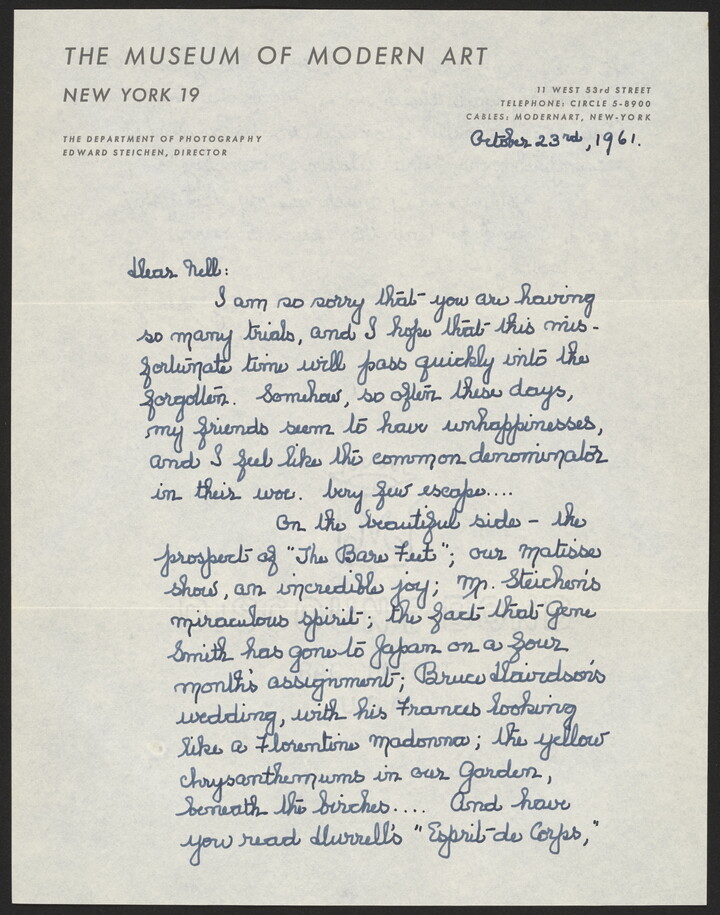 THE MUSEUM OF MODERN ART
NEW YORK 19
11 WEST 53rd STREET
TELEPHONE: CIRCLE 5-8900
CABLES: MODERNART, NEW-YORK
THE DEPARTMENT OF PHOTOGRAPHY
EDWARD STEICHEN, DIRECTOR
October 23rd, 1961.
Dear Nell:
I am so sorry that you are having
so many trials, and I hope that this mis-
fortunate time will pass quickly into the
forgotten. Somehow, so often these days,
my friends seem to have unhappinesses,
and I feel like the common denominator
in their woe. Very few escape....
On the beautiful side - the
prospect of "The Bare Feet"; our Matisse
show, an incredible joy; Mr. Steichen's
miraculous spirit; the fact that Gene
Smith has gone to Japan on a four
month's assignment; Bruce Davidson's
wedding, with his Frances looking
like a Florentine Madonna; the yellow
chrysanthemums in our Garden,
beneath the birches.... And have
you read Durrell's "Esprit de Corps,"